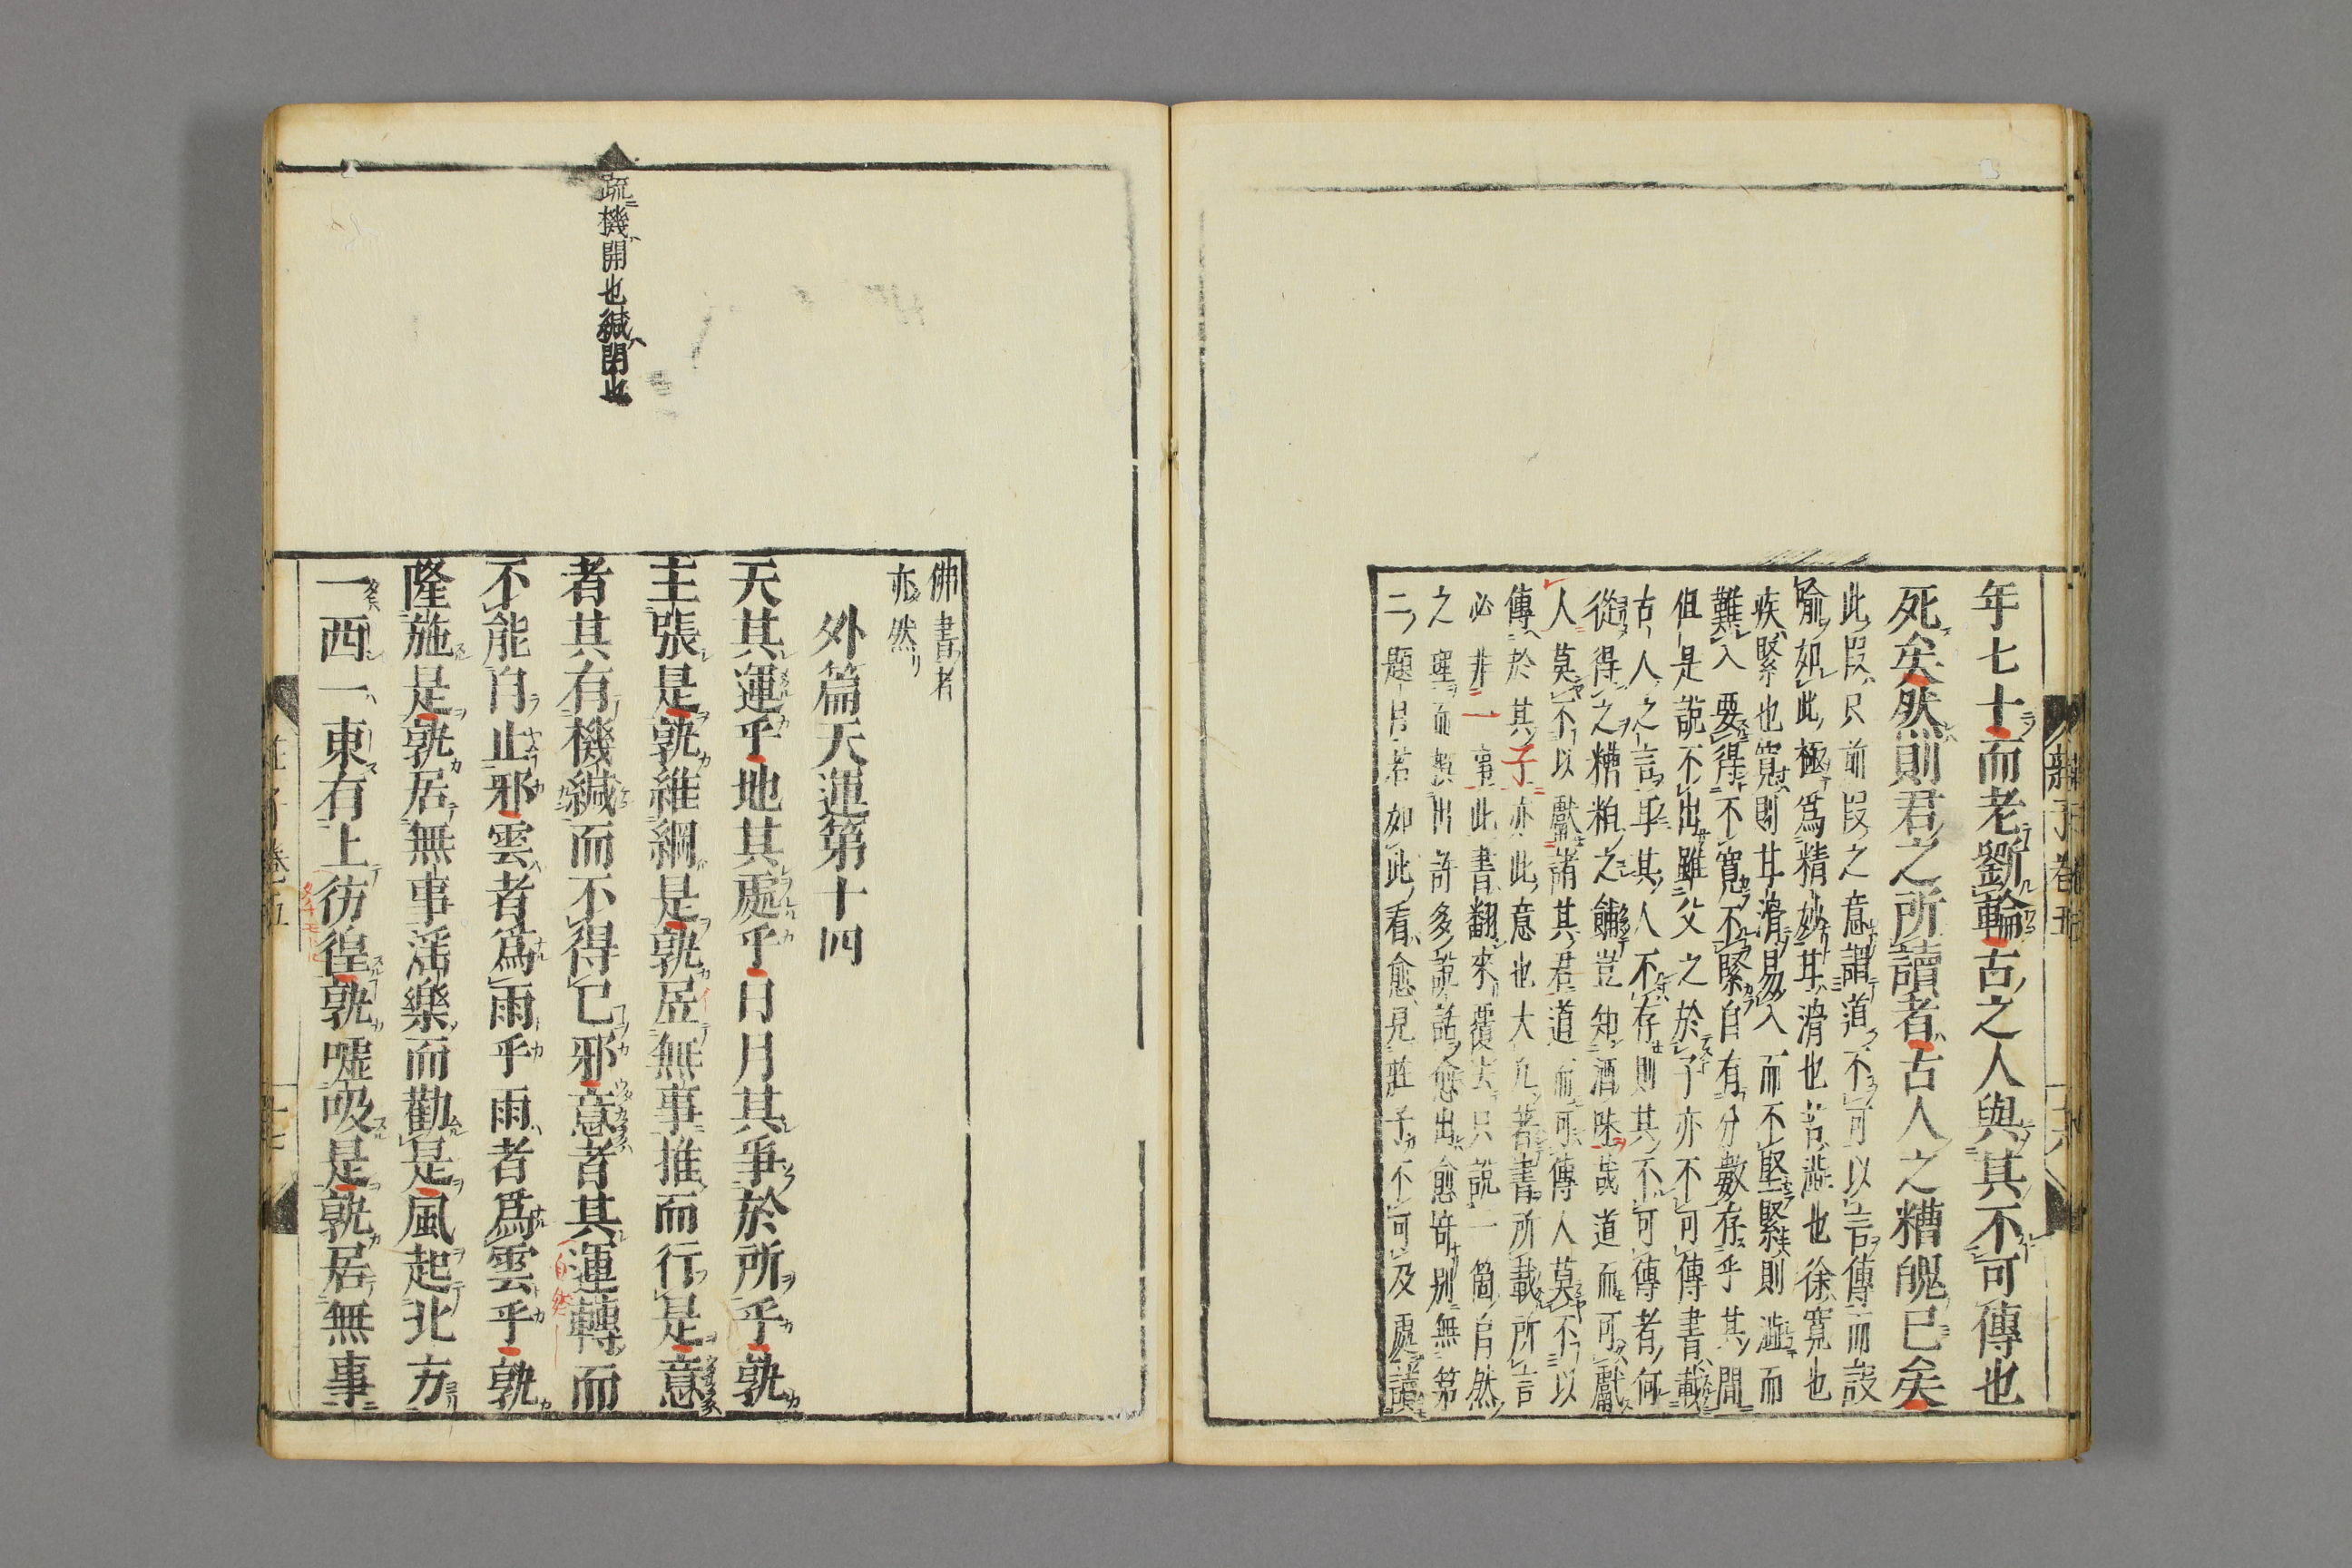 年七十而老斲輪古之人與其不可傳也
死矣然則君之所讀者古人之糟魄已矣
此段只前段之意謂道不可以言傳而設
喻如此極爲精妙甘滑也苦澁也徐寬也
疾緊也寬則甘滑易入而不堅緊則澁而
難入要得不寬不緊自有分數存乎其間
但是說不出雖父之於子亦不可傳書載
古人之言耳其人不存則其不可傳者何
從得之糟粕之餔豈知酒味哉道而可獻
人莫不以獻諸其君道而可傳人莫不以
傳於其子亦此意也大凡著書所載所言
必非一事此書翻來覆去只說一箇自然
之理而撰出許多說話愈出愈竒別無第
二題目若如此看愈見莊子不可及處讀
莊子卷五
十六
佛書者
亦然
外篇天運第十四
天其運乎地其處乎日月其爭於所乎孰
主張是孰維綱是孰居無事推而行是意
者其有機緘而不得已邪意者其運轉而
不能自止邪雲者爲雨乎雨者爲雲乎孰
隆施是孰居無事淫樂而勸是風起北方
一西一東有上彷徨孰噓吸是孰居無事
疏機開也緘閉也
莊子卷五
十七